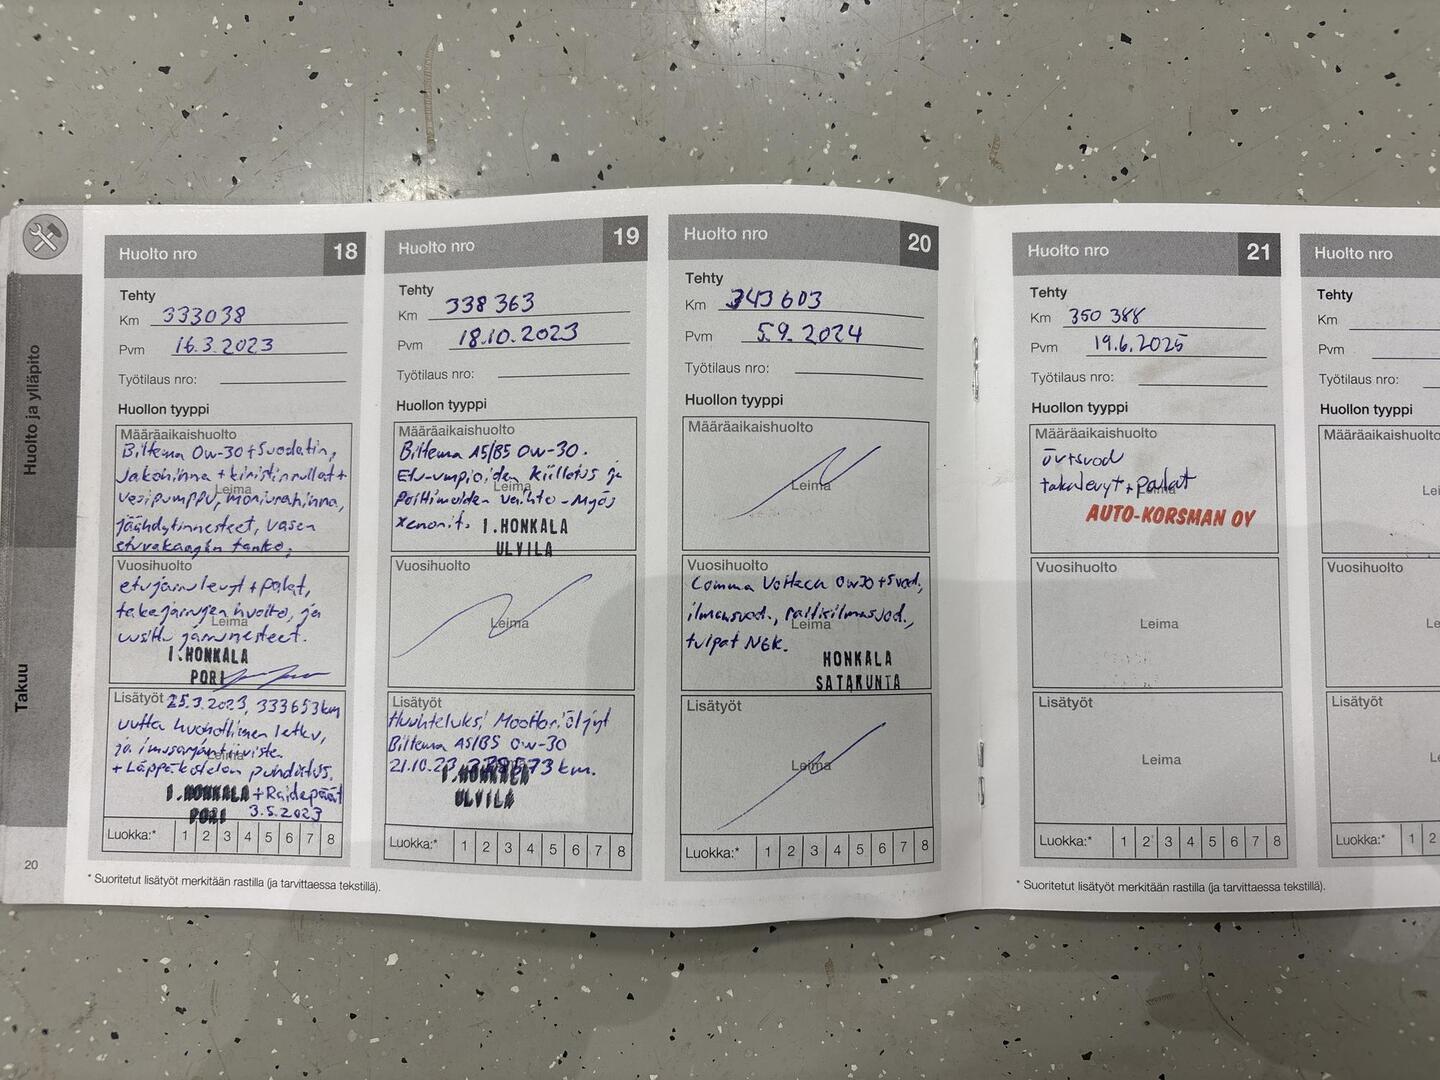 Huolto ja ylläpito
Takuu
20
Huolto nro 18
Tehty
Km 333038
Pvm 16.3.2023
Työtilaus nro:
Huollon tyyppi
Määräaikaishuolto
Biltema 0w-30 + Suodatin,
Jakohihna + kiristinrullat +
Leima
vesipumppu, moniurahihna,
jäähdytinnesteet, vasen
etuvakaajan tanko,
Vuosihuolto
etujarrulevyt + palat,
takajarrujen huolto, ja
Leima
uusittu jarrunesteet.
I.HONKALA
PORI
Lisätyöt 25.3.2023, 333653km
uutta huohottimen letku,
ja imusarjantiiviste
Leima
+ Läppäkotelon puhdistus.
I.HONKALA + Raidepäät
PORI 3.5.2023
Luokka:* 1 2 3 4 5 6 7 8
* Suoritetut lisätyöt merkitään rastilla (ja tarvittaessa tekstillä).
Huolto nro 19
Tehty
Km 338 363
Pvm 18.10.2023
Työtilaus nro:
Huollon tyyppi
Määräaikaishuolto
Biltema A5/B5 0w-30.
Etu-umpioiden kiillotus ja
Leima
polttimoiden vaihto - Myös
xenonit. I.HONKALA
ULVILA
Vuosihuolto
Leima
Lisätyöt
Huuhteluksi Moottoriöljyt
Biltema A5/B5 0w-30
21.10.23 573 km.
I.HONKALA
ULVILA
Luokka:* 1 2 3 4 5 6 7 8
Huolto nro 20
Tehty
Km 343 603
Pvm 5.9.2024
Työtilaus nro:
Huollon tyyppi
Määräaikaishuolto
Leima
Vuosihuolto
Comma 0w30 + Suod,
ilmansuod., raitisilmasuod.,
Leima
tulpat NGK.
HONKALA
SATAKUNTA
Lisätyöt
Leima
Luokka:* 1 2 3 4 5 6 7 8
Huolto nro 21
Tehty
Km 350 388
Pvm 19.6.2025
Työtilaus nro:
Huollon tyyppi
Määräaikaishuolto
öv+suod
takalevyt + palat
Leima
AUTO-KORSMAN OY
Vuosihuolto
Leima
Lisätyöt
Leima
Luokka:* 1 2 3 4 5 6 7 8
* Suoritetut lisätyöt merkitään rastilla (ja tarvittaessa tekstillä).
Huolto nro
Tehty
Km
Pvm
Työtilaus nro:
Huollon tyyppi
Määräaikaishuolto
Lei
Vuosihuolto
Le
Lisätyöt
Le
Luokka:* 1 2